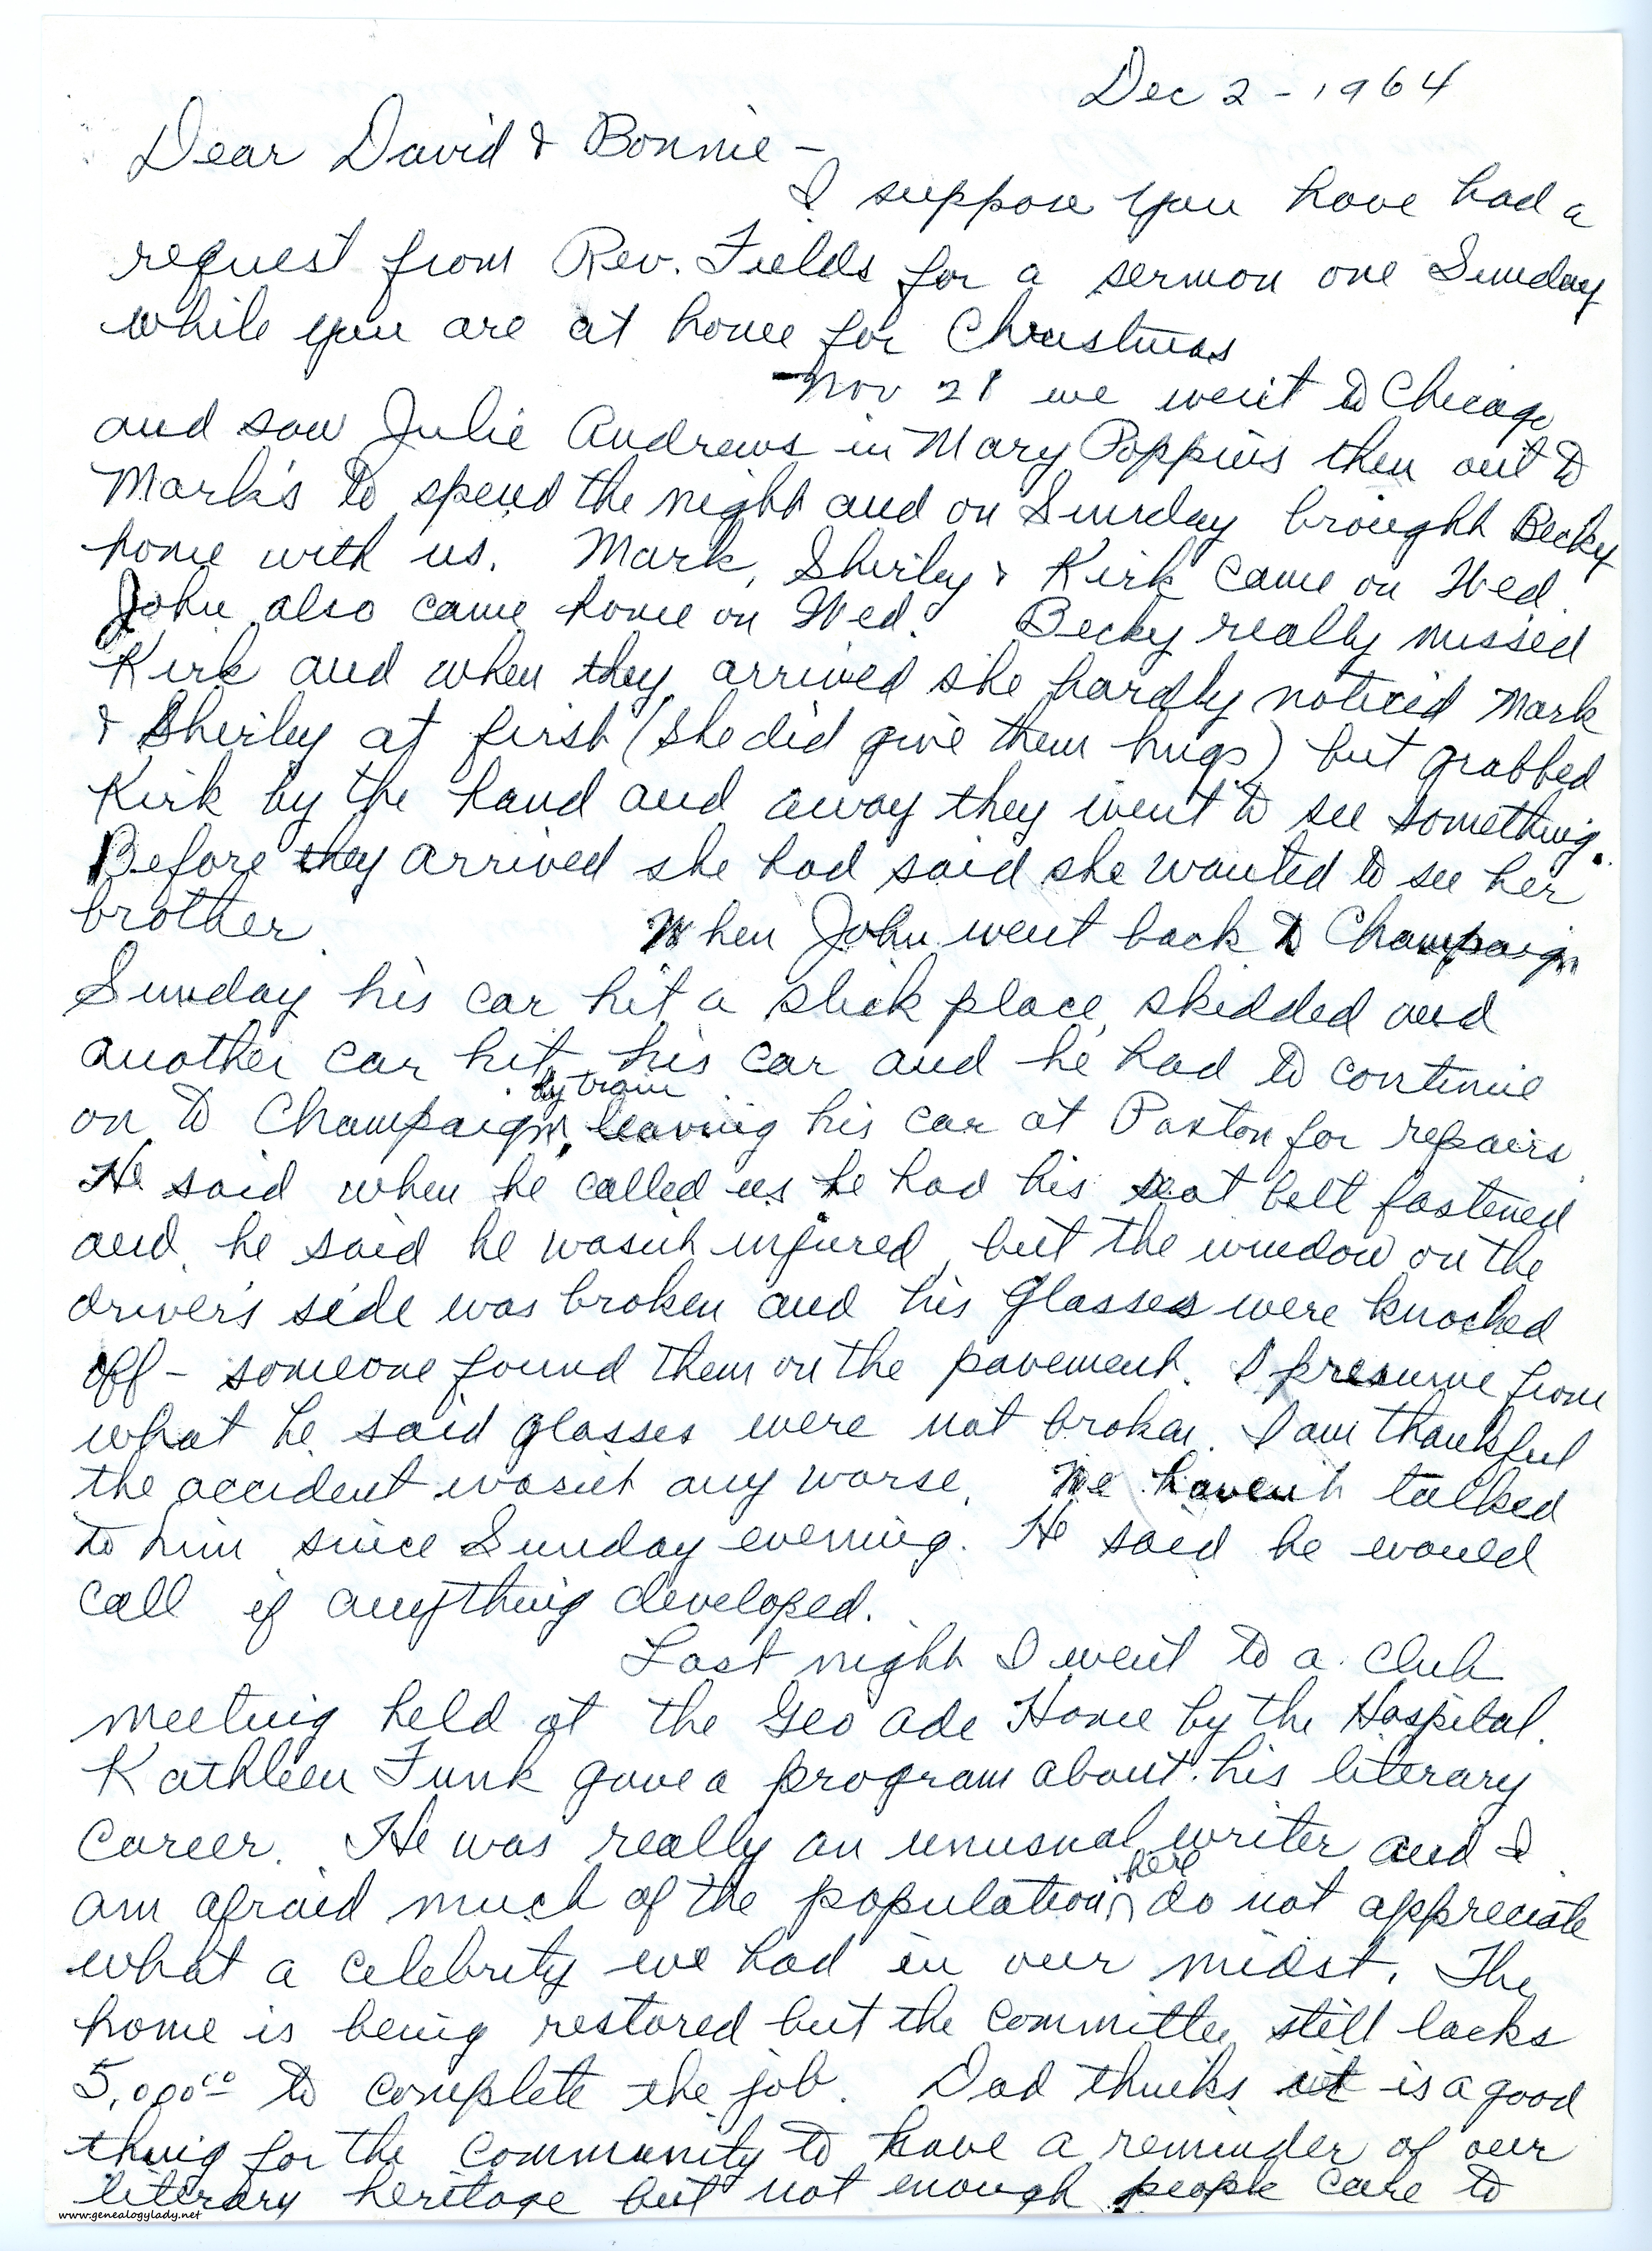 Dec 2 - 1964
Dear David & Bonnie -
I suppose you have had a
request from Rev. Fields for a sermon one Sunday
while you are at home for Christmas
Nov 21 we went to Chicago
and saw Julie Andrews in Mary Poppins then out to
Mark's to spend the night and on Sunday brought Becky
home with us. Mark, Shirley & Kirk came on Wed.
John also came home on Wed. Becky really missed
Kirk and when they arrived she hardly noticed Mark
& Shirley at first (she did give them hugs) but grabbed
Kirk by the hand and away they went to see something.
Before they arrived she had said she wanted to see her
brother. When John went back to Champaign
Sunday his car hit a slick place, skidded and
another car hit his car and he had to continue
by train
on to Champaign, leaving his car at Paxton for repairs.
He said when he called us he had his seat belt fastened
and he said he wasn't injured, but the window on the
driver's side was broken and his glasses were knocked
off - someone found them on the pavement. I presume from
what he said glasses were not broken. I am thankful
the accident wasn't any worse. We haven't talked
to him since Sunday evening. He said he would
call if anything developed.
Last night I went to a club
meeting held at the Geo Ade Home by the Hospital.
Kathleen Funk gave a program about his literary
career. He was really an unusual writer and I
here
am afraid much of the population do not appreciate
what a celebrity we had in our midst. The
home is being restored but the committee still lacks
5,000.00 to complete the job. Dad thinks it is a good
thing for the community to have a reminder of our
literary heritage but not enough people care to
www.genealogylady.net